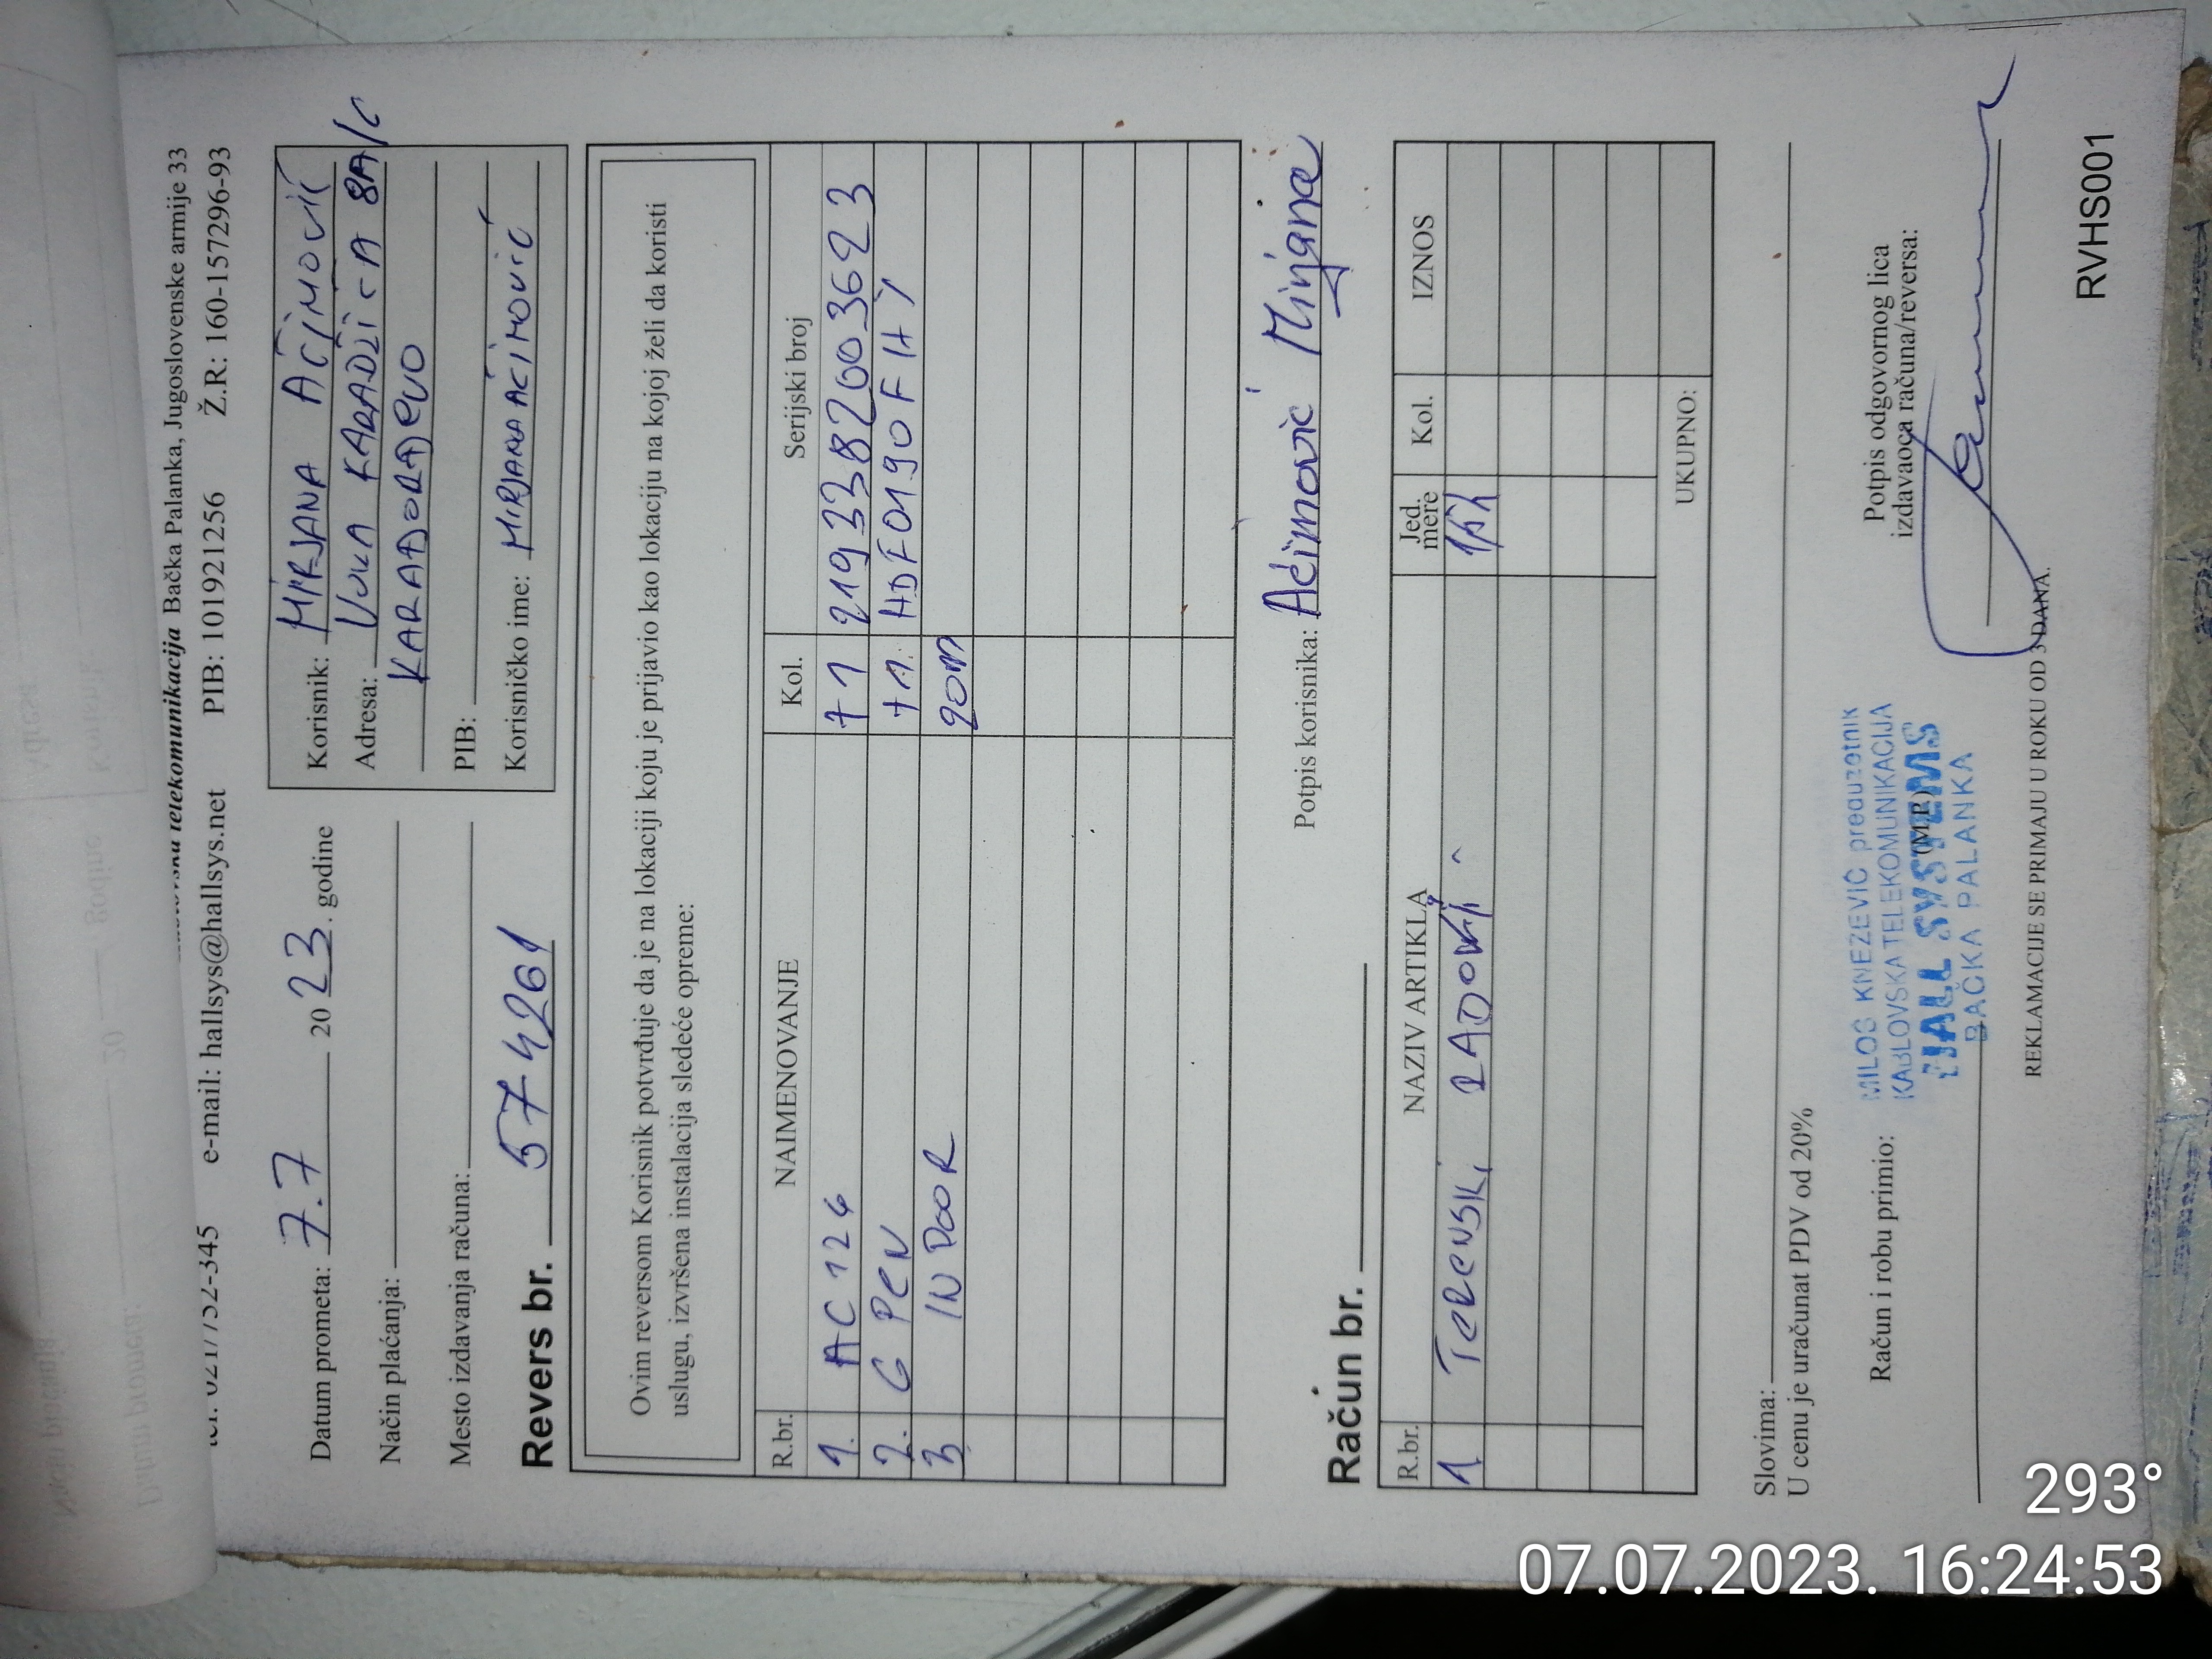 telekomunikacija Bačka Palanka, Jugoslovenske armije 33
e-mail: hallsys@hallsys.net PIB: 101921256 Ž.R.: 160-157296-93
Datum prometa: 7.7 2023. godine
Način plaćanja:
Mesto izdavanja računa:
Korisnik: MIRJANA AĆIMOVIĆ
Adresa: VUKA KARADŽIĆA 8A/C
KARAĐORĐEVO
PIB:
Korisničko ime: MIRJANA AĆIMOVIĆ
Revers br. 574261
Ovim reversom Korisnik potvrđuje da je na lokaciji koju je prijavio kao lokaciju na kojoj želi da koristi
uslugu, izvršena instalacija sledeće opreme:
R.br. NAIMENOVANJE Kol. Serijski broj
1. AC 126 +1 2193382003623
2. G PON +1. HDF0190FH7
3 INDOOR 20m
Potpis korisnika: Aćimović Mirjana
Račun br.
R.br. NAZIV ARTIKLA Jed. mere Kol. IZNOS
1 TERENSKI RADOVI
UKUPNO:
Slovima:
U cenu je uračunat PDV od 20%
Račun i robu primio:
MILOŠ KNEŽEVIĆ preduzetnik
KABLOVSKA TELEKOMUNIKACIJA
(M.P.)
HALL SYSTEMS
BAČKA PALANKA
Potpis odgovornog lica
izdavaoca računa/reversa:
REKLAMACIJE SE PRIMAJU U ROKU OD 3 DANA.
RVHS001
293°
07.07.2023. 16:24:53